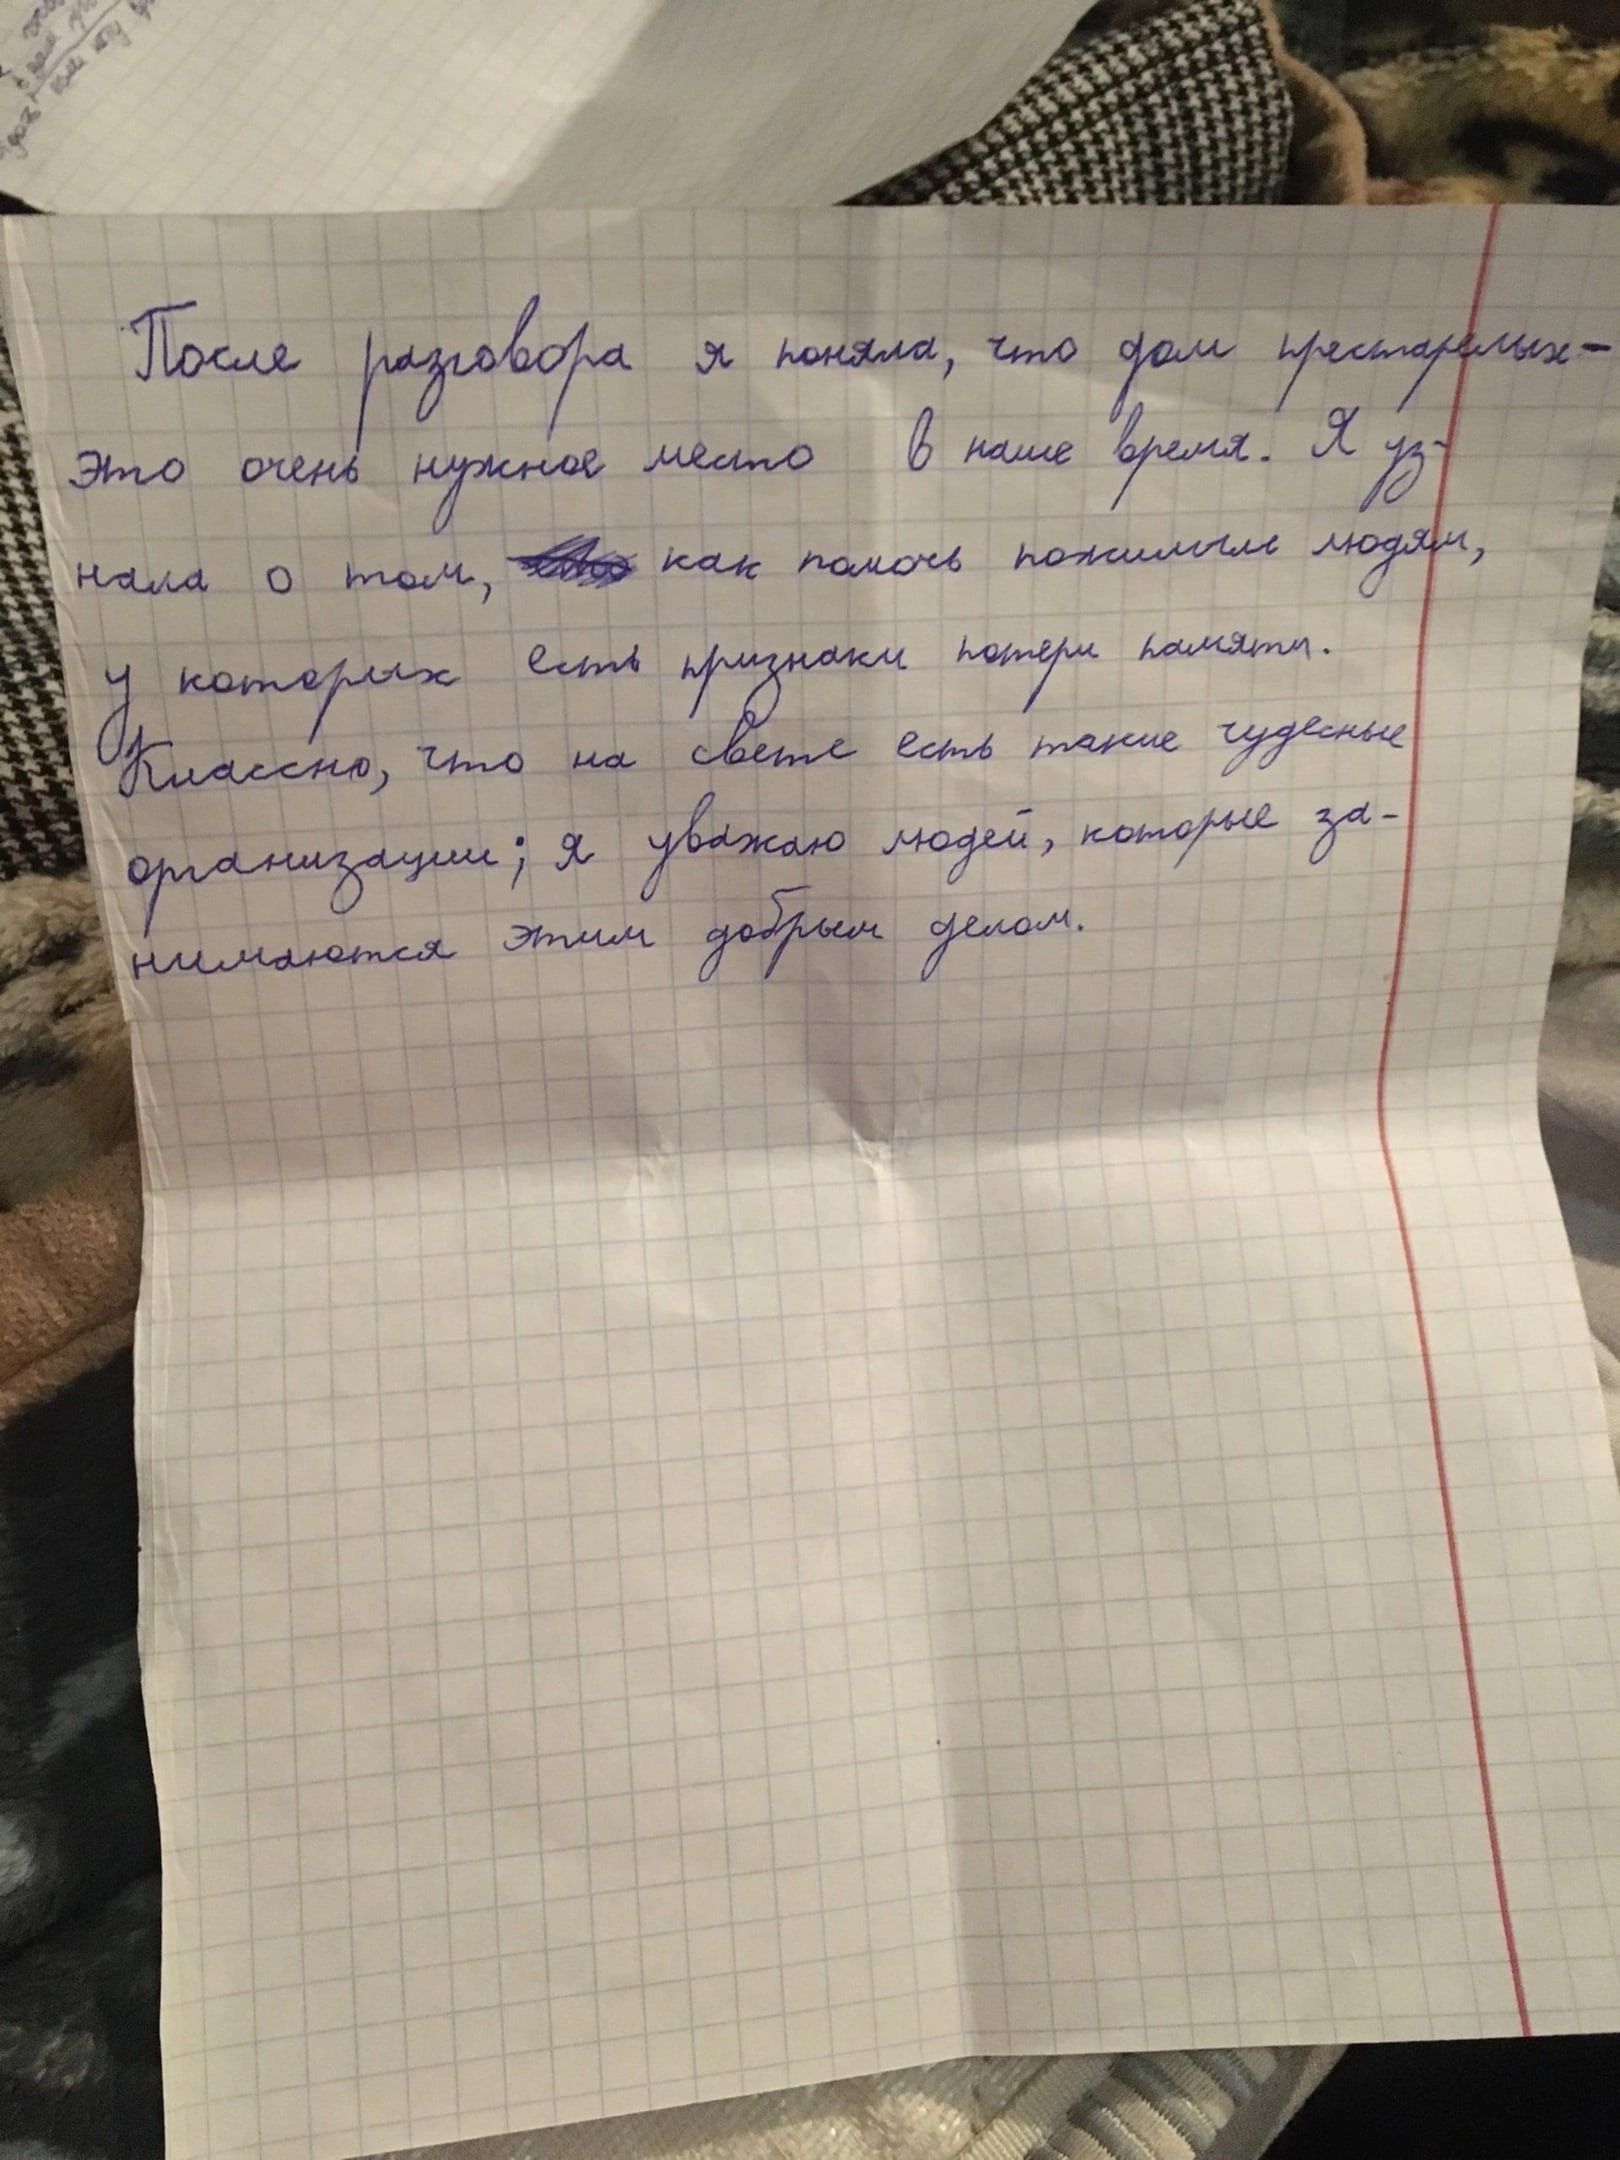 После разговора я поняла, что дом престарелых-
это очень нужное место в наше время. Я уз-
нала о том, как помочь пожилым людям,
у которых есть признаки потери памяти.
Классно, что на свете есть такие чудесные
организации; я уважаю людей, которые за-
нимаются этим добрым делом.